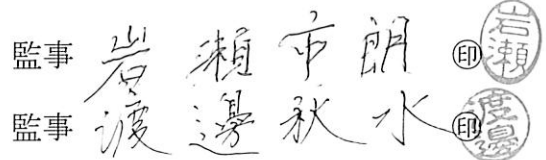 監事 岩瀬市朗 ㊞ 岩瀬
監事 渡邊秋水 ㊞ 渡邊